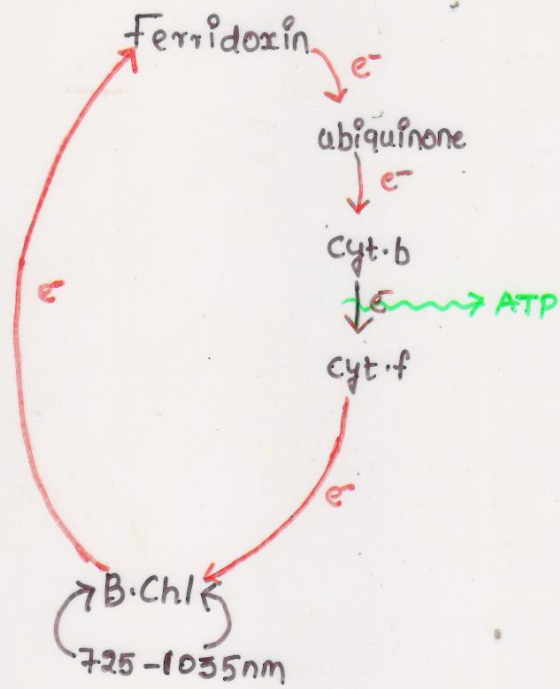 Ferridoxin
e-
ubiquinone
e-
Cyt.b
e- ATP
Cyt.f
e-
e-
B.Chl
725-1035nm